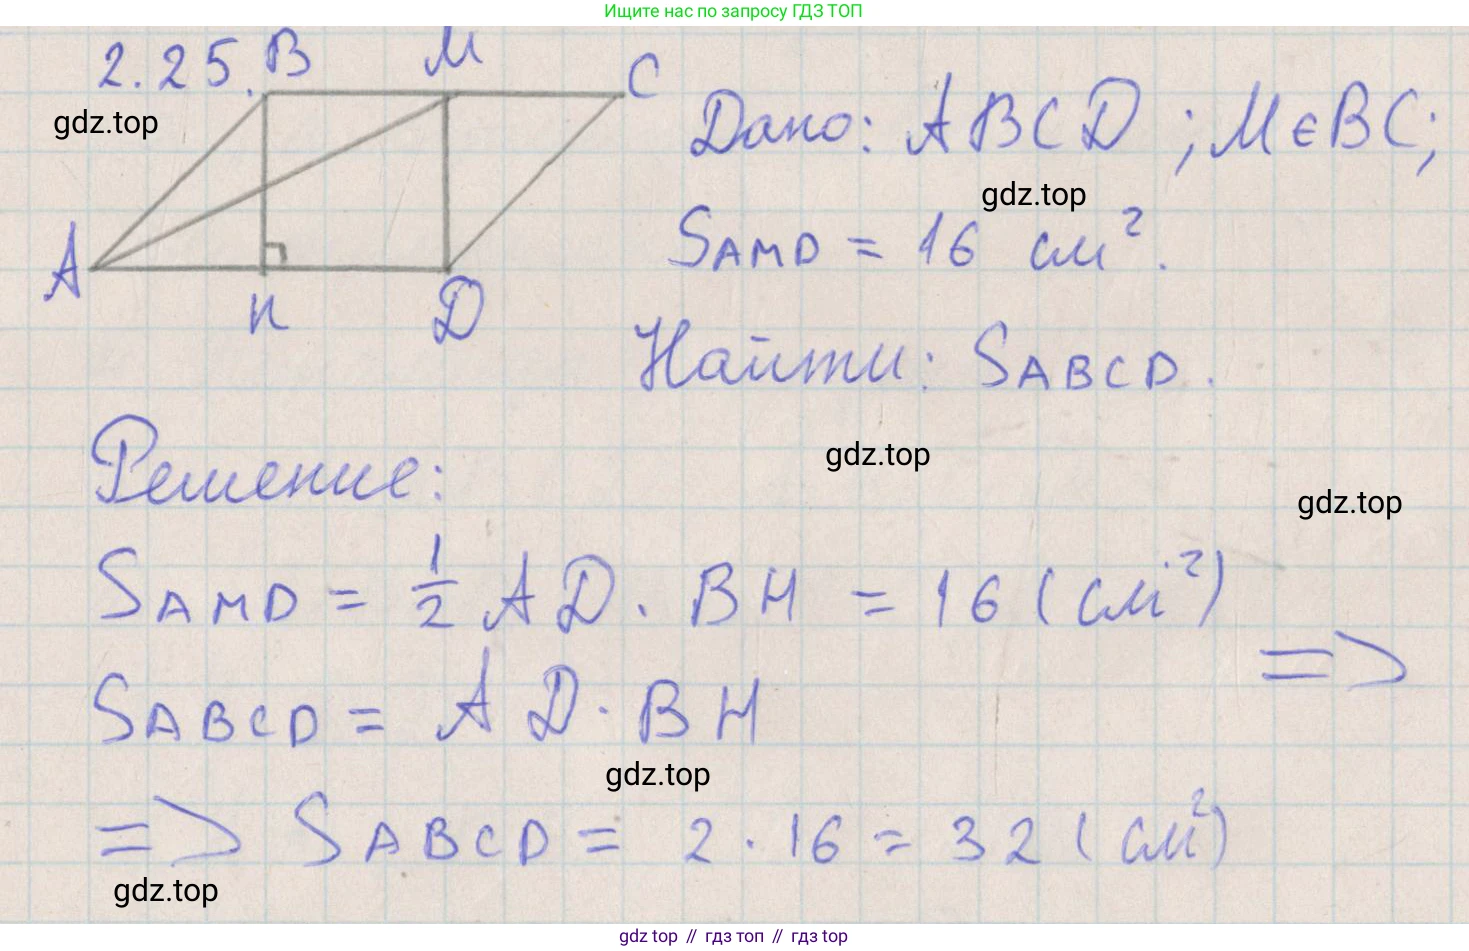 Ищите нас по запросу ГДЗ ТОП
2.25. B M C
gdz.top
Дано: ABCD ; M ∈ BC;
gdz.top
SAMD = 16 см².
A H D
Найти: SABCD.
gdz.top
Решение:
gdz.top
SAMD = 1/2 AD · BH = 16 (см²)
=>
SABCD = AD · BH
gdz.top
=> SABCD = 2 · 16 = 32 (см²)
gdz.top
gdz top // гдз топ // гдз top